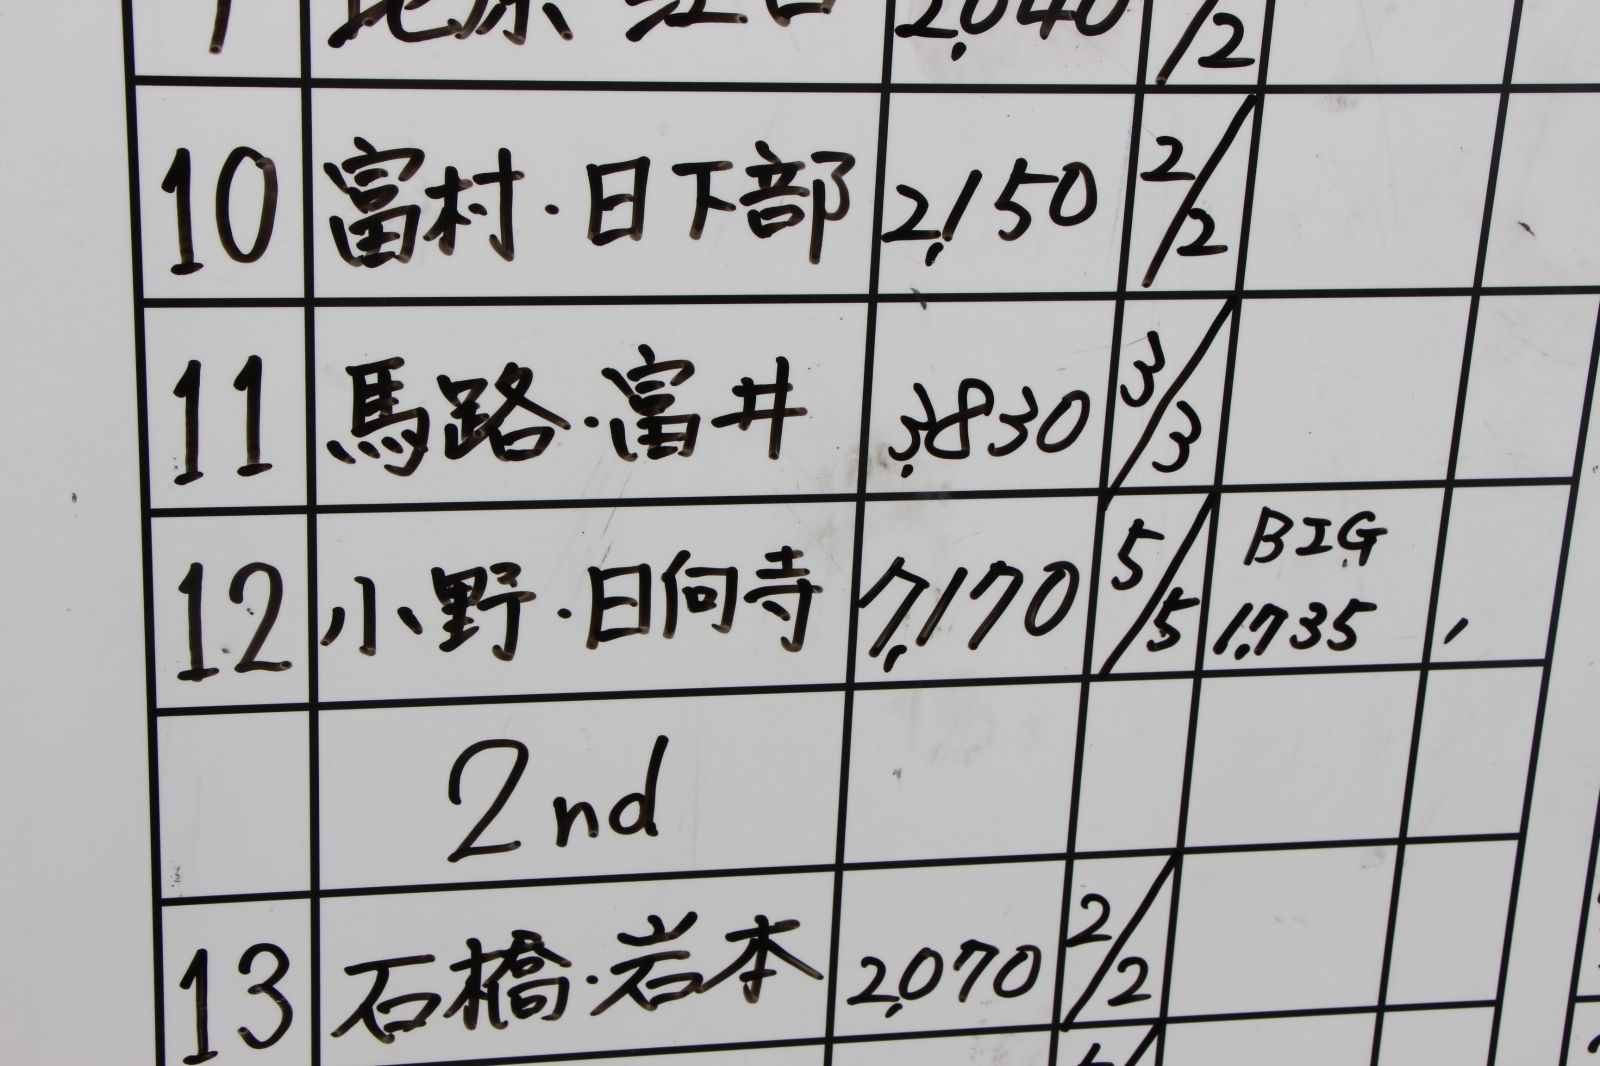 2,040 /2
10 富村・日下部 2,150 2/2
11 馬路・富井 3,830 3/3
12 小野・日向寺 7,170 5/5 BIG 1,735
2nd
13 石橋・岩本 2,070 2/2